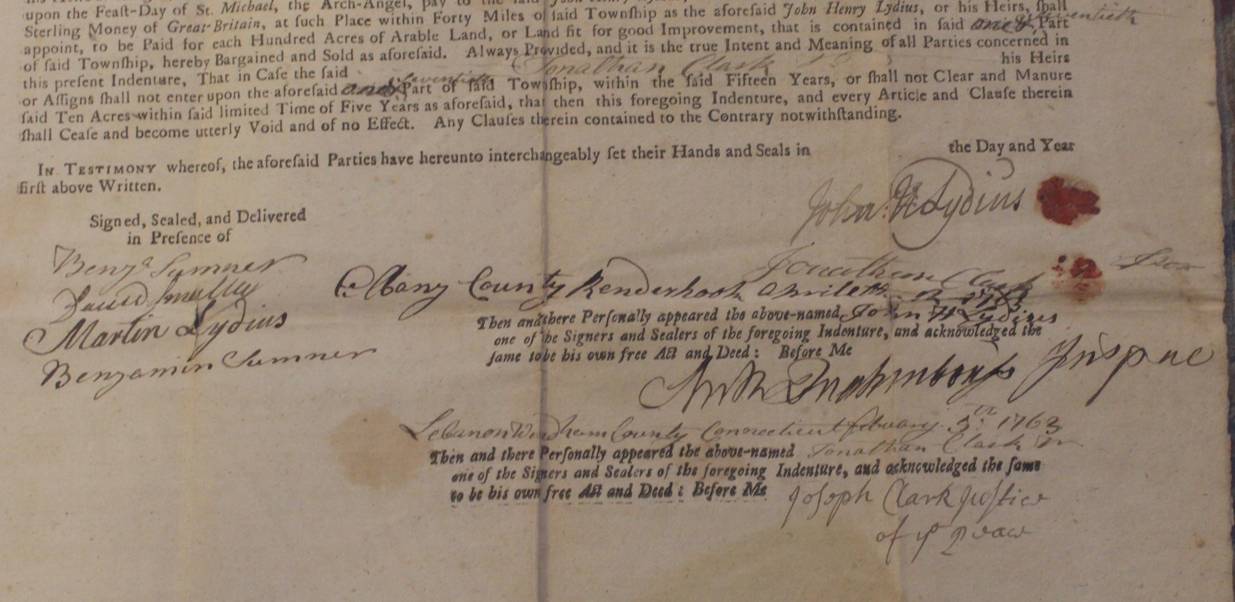 upon the Feaſt-Day of St. Michael, the Arch-Angel, pay to the ſaid
Sterling Money of Great-Britain, at ſuch Place within Forty Miles of ſaid Townſhip as the aforeſaid John Henry Lydius, or his Heirs, ſhall
appoint, to be Paid for each Hundred Acres of Arable Land, or Land fit for good Improvement, that is contained in ſaid one Seventieth Part
of ſaid Townſhip, hereby Bargained and Sold as aforeſaid. Always Provided, and it is the true Intent and Meaning of all Parties concerned in
this preſent Indenture, That in Caſe the ſaid Jonathan Clark Jr his Heirs
or Aſſigns ſhall not enter upon the aforeſaid one Seventieth Part of ſaid Townſhip, within the ſaid Fifteen Years, or ſhall not Clear and Manure
ſaid Ten Acres within ſaid limited Time of Five Years as aforeſaid, that then this foregoing Indenture, and every Article and Clauſe therein
ſhall Ceaſe and become utterly Void and of no Effect. Any Clauſes therein contained to the Contrary notwithſtanding.
IN TESTIMONY whereof, the aforeſaid Parties have hereunto interchangeably ſet their Hands and Seals in the Day and Year
firſt above Written.
John H Lydius
Signed, Sealed, and Delivered
in Preſence of
Benja Sumner
David
Martin Lydius
Benjamin Sumner
Jonathan Clark
Albany County Kenderhook 1763
Then and there Perſonally appeared the above-named John H Lydius
one of the Signers and Sealers of the foregoing Indenture, and acknowledged the
ſame to be his own free Act and Deed: Before Me
Juſpac
Lebanon Windham County Connecticut febuary 3th 1763
Then and there Perſonally appeared the above-named Jonathan Clark Jr
one of the Signers and Sealers of the foregoing Indenture, and acknowledged the ſame
to be his own free Act and Deed: Before Me
Joſeph Clark Juſtice
of ye peace